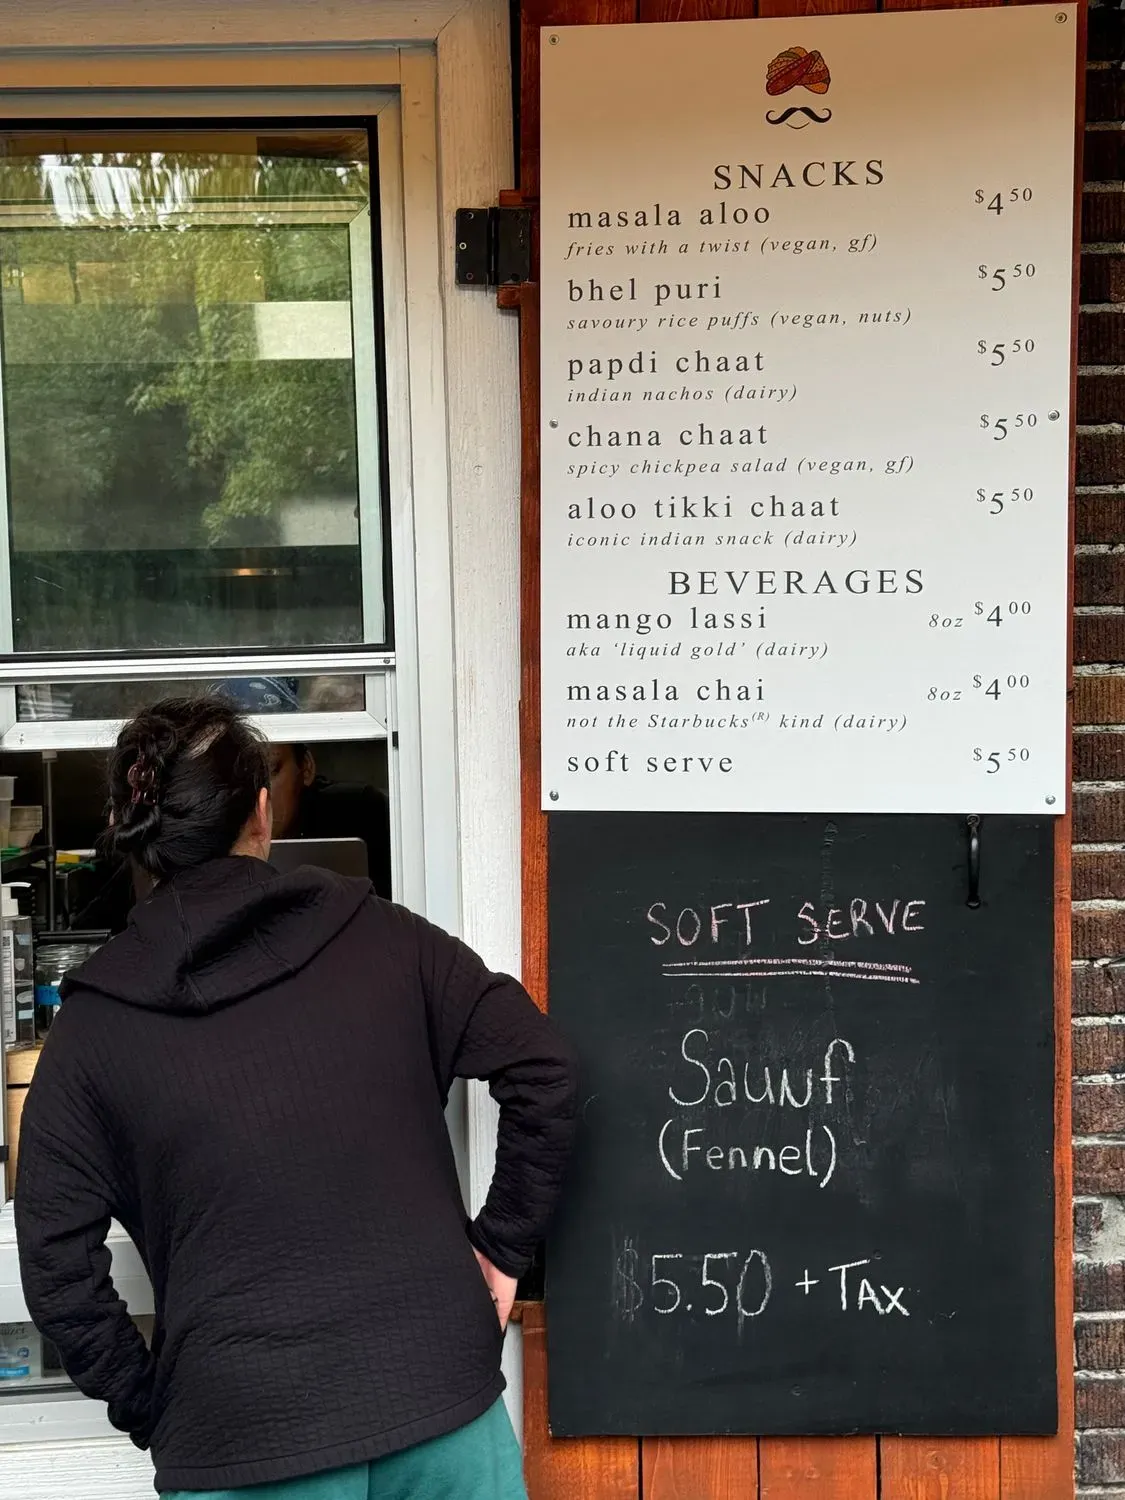 SNACKS
masala aloo $4 50
fries with a twist (vegan, gf)
bhel puri $5 50
savoury rice puffs (vegan, nuts)
papdi chaat $5 50
indian nachos (dairy)
chana chaat $5 50
spicy chickpea salad (vegan, gf)
aloo tikki chaat $5 50
iconic indian snack (dairy)
BEVERAGES
mango lassi 8oz $4 00
aka ‘liquid gold’ (dairy)
masala chai 8oz $4 00
not the Starbucks(R) kind (dairy)
soft serve $5 50
SOFT SERVE
Saunf
(Fennel)
$5.50 + TAX